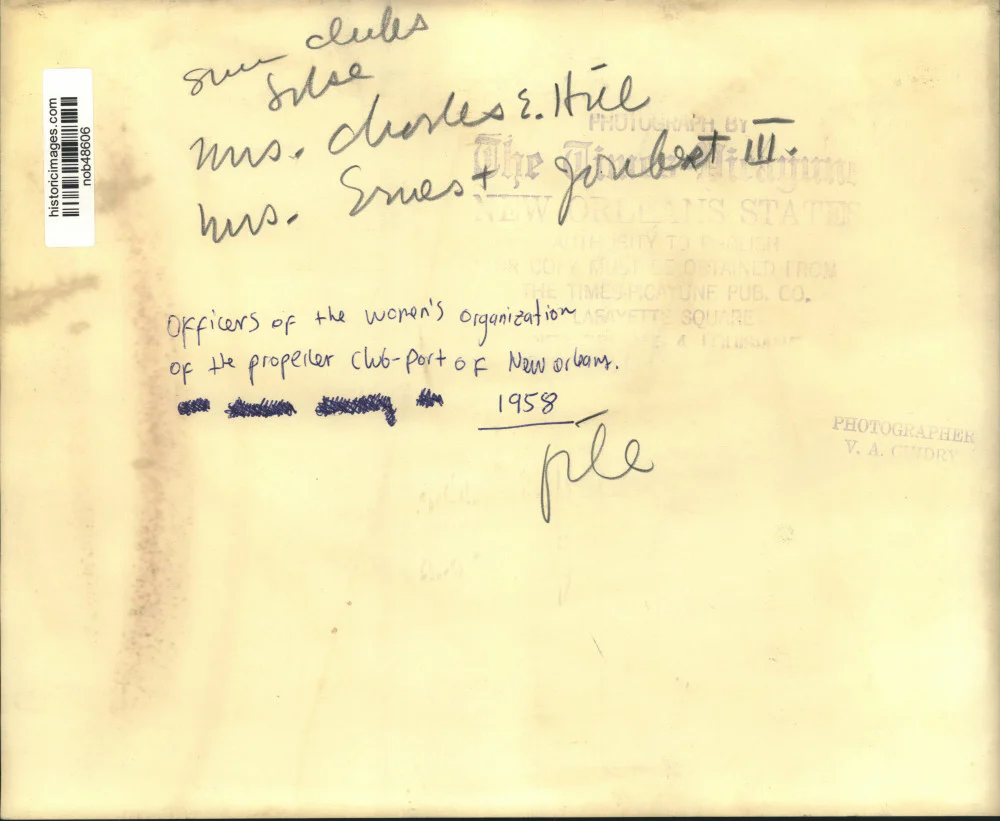 sun clubs
Mrs. Charles E. Hill
Mrs. Ernest Joubert III.
historicimages.com
nob48606
PHOTOGRAPH BY
The Times-Picayune
NEW ORLEANS STATES
AUTHORITY TO PUBLISH
OR COPY MUST BE OBTAINED FROM
THE TIMES-PICAYUNE PUB. CO.
LAFAYETTE SQUARE
officers of the women's organization
of the propeller Club-Port of New orleans.
1958
file
PHOTOGRAPHER
V. A.